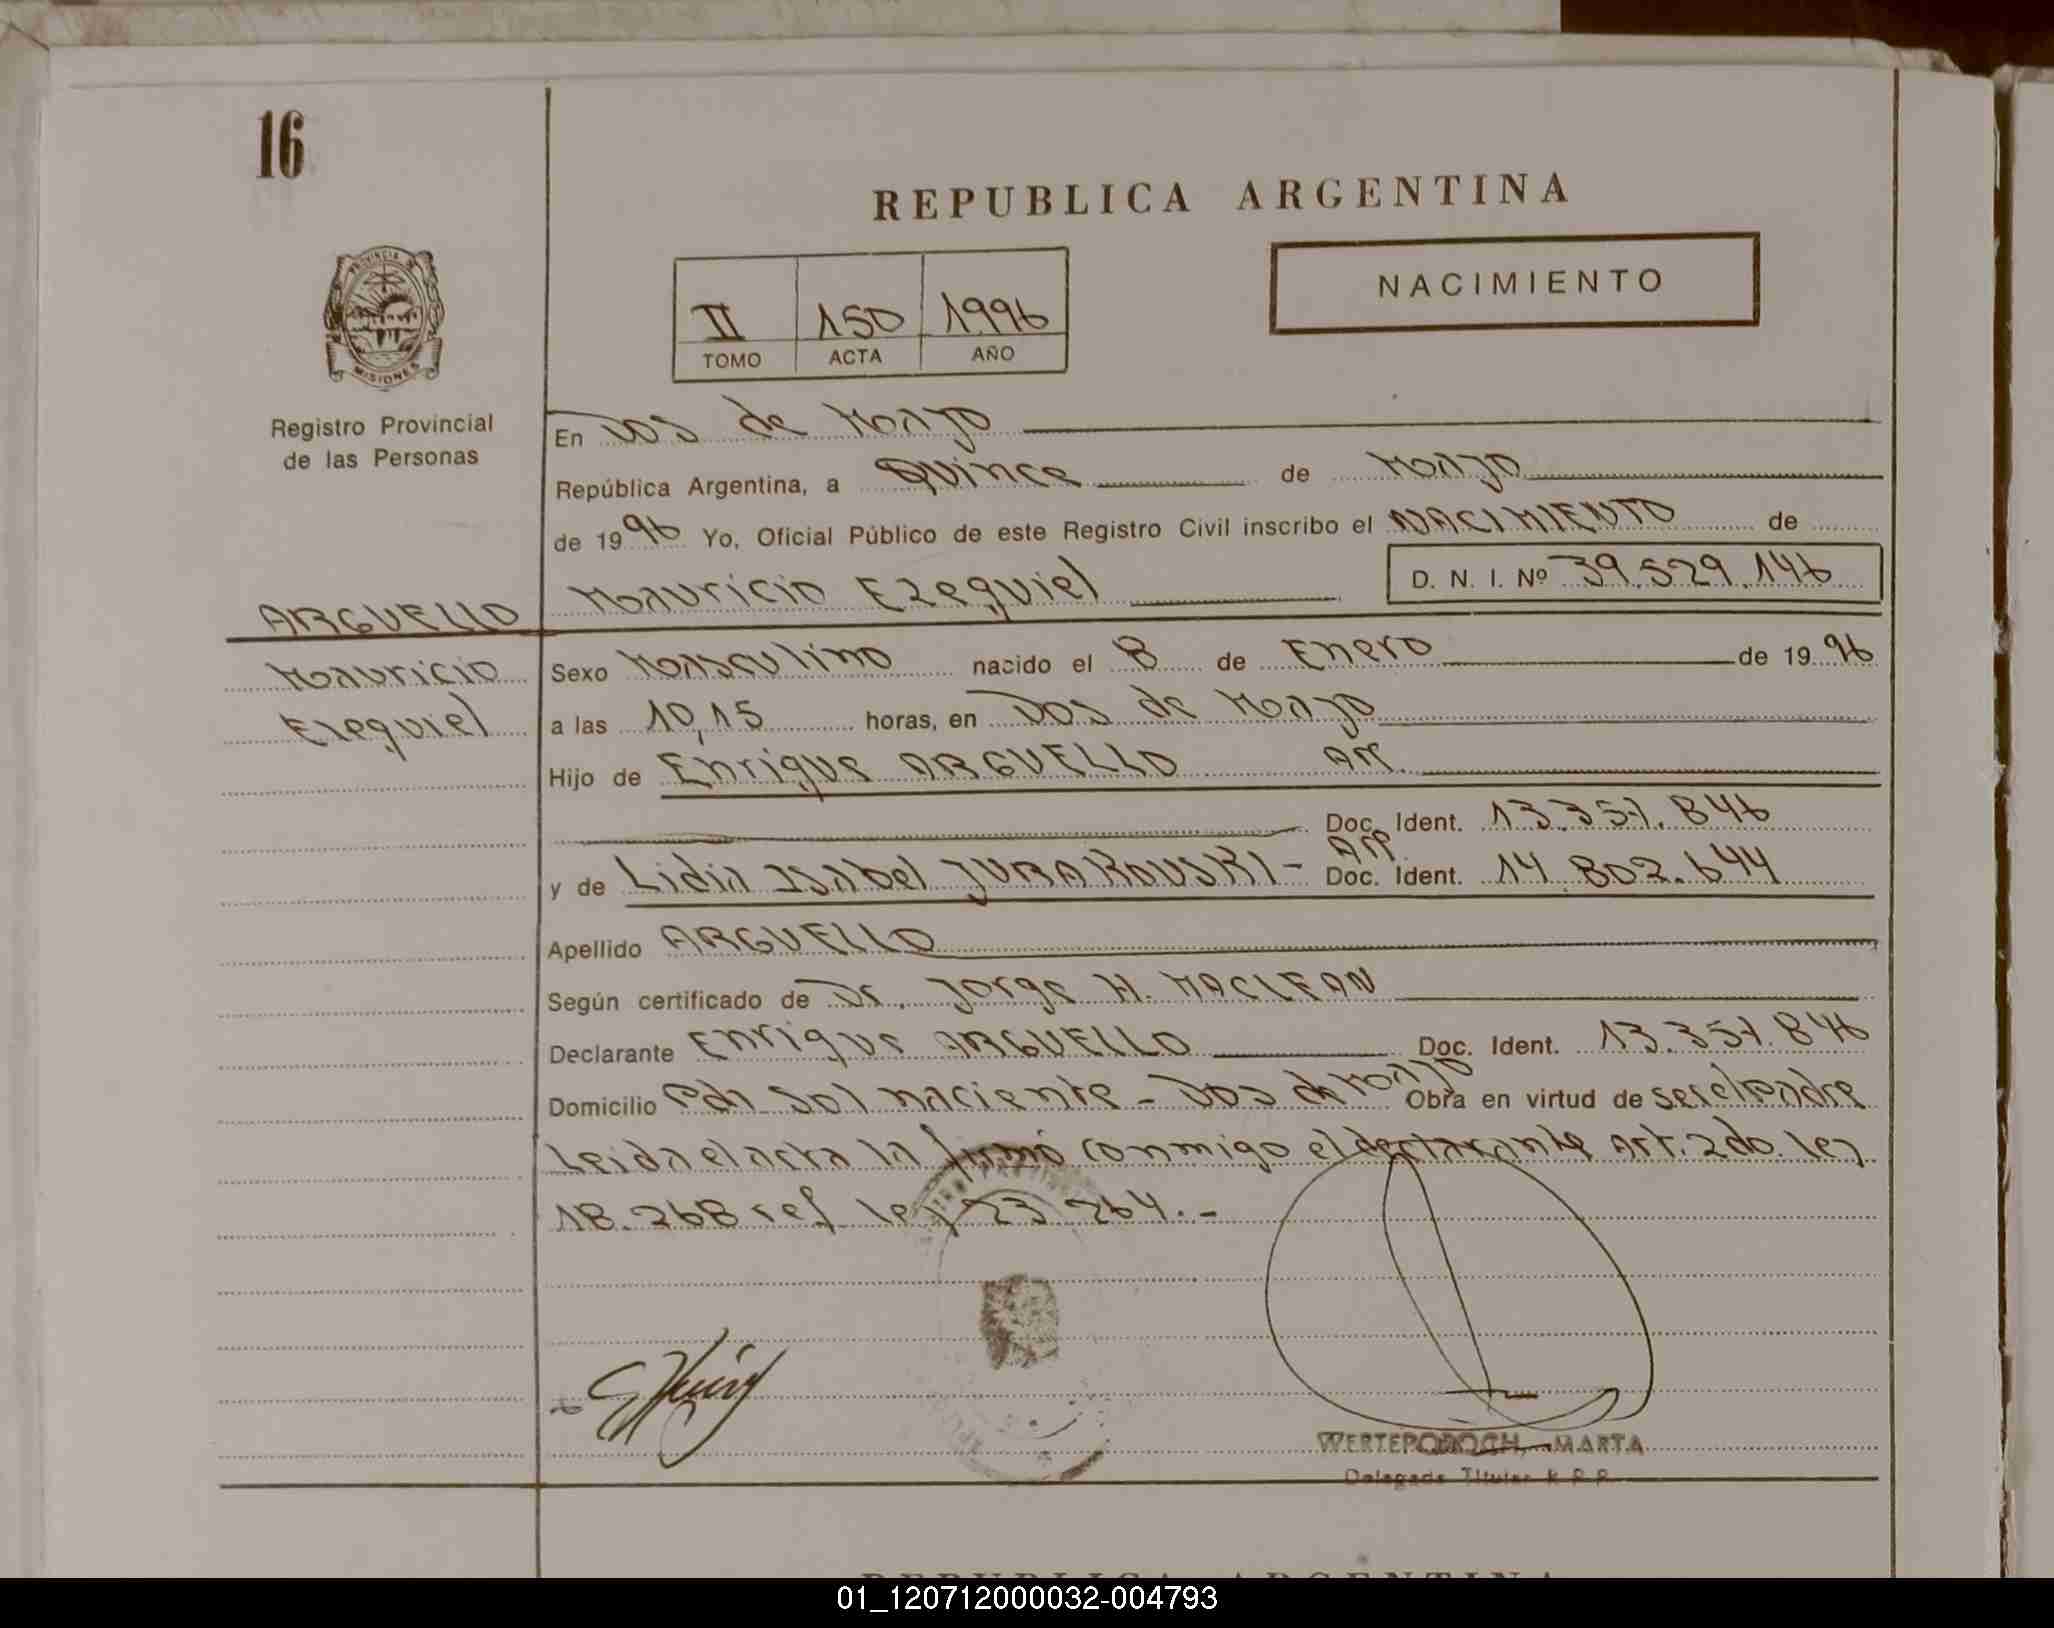 16
REPUBLICA ARGENTINA
NACIMIENTO
II 150 1996
TOMO ACTA AÑO
PROVINCIA DE
MISIONES
Registro Provincial
de las Personas
En Dos de Mayo
República Argentina, a Quince de Mayo
de 1996 Yo, Oficial Público de este Registro Civil inscribo el NACIMIENTO de
Mauricio Ezequiel D. N. I. Nº 39.529.146
ARGUELLO
Mauricio
Ezequiel
Sexo Masculino nacido el 8 de Enero de 1996
a las 10,15 horas, en Dos de Mayo
Hijo de Enrique ARGUELLO Arg.
Doc. Ident. 13.357.846
Arg.
y de Lidia Isabel JURAKOUSKI - Doc. Ident. 14.802.644
Apellido ARGUELLO
Según certificado de Dr. Jorge H. MACLEAN
Declarante Enrique ARGUELLO Doc. Ident. 13.357.846
Domicilio Pda Sol naciente - Dos de Mayo Obra en virtud de ser el padre
Leida el acta la firmó conmigo el declarante Art. 2do. ley
18.268 ref. ley 23.264.-
WERTEPOROCH, MARTA
Delegada Titular R.P.P.
REPUBLICA ARGENTINA
01_120712000032-004793